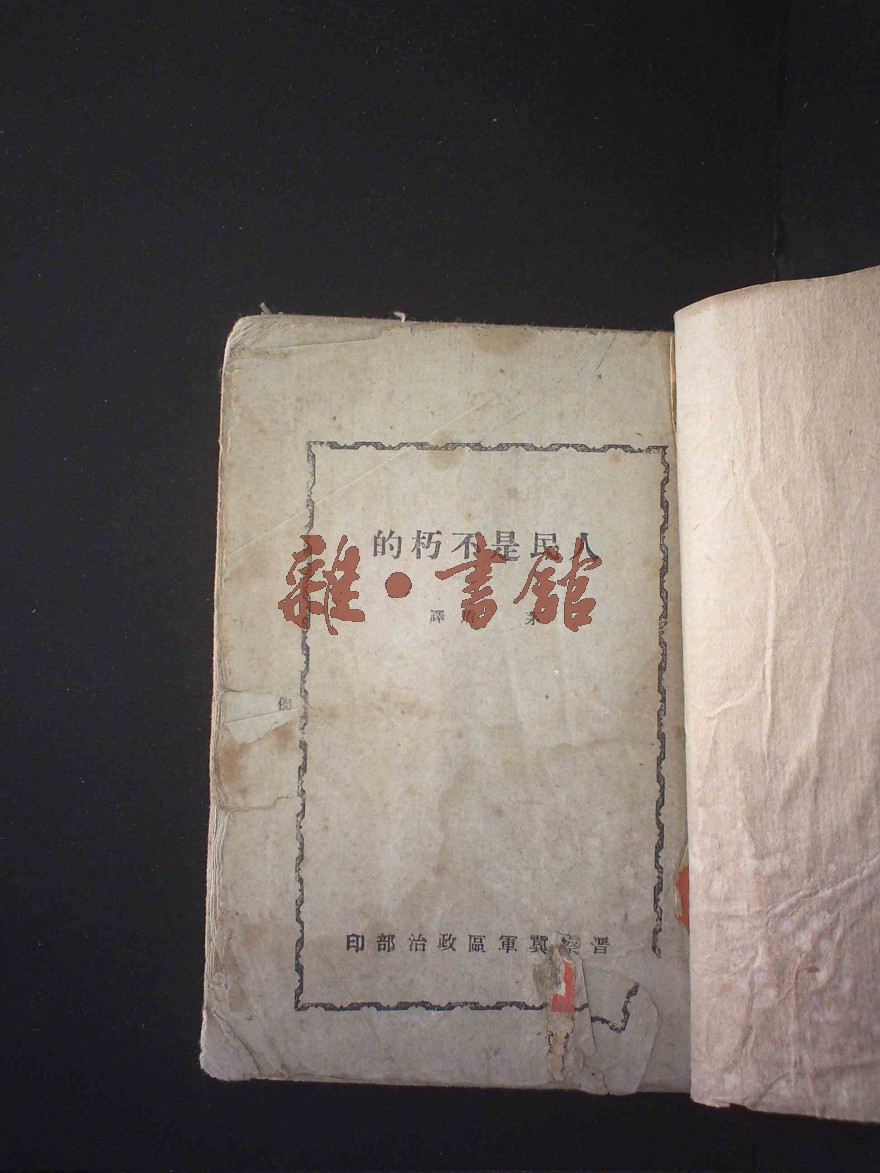 人民是不朽的
雜·書館
茅盾譯
晉察冀軍區政治部印